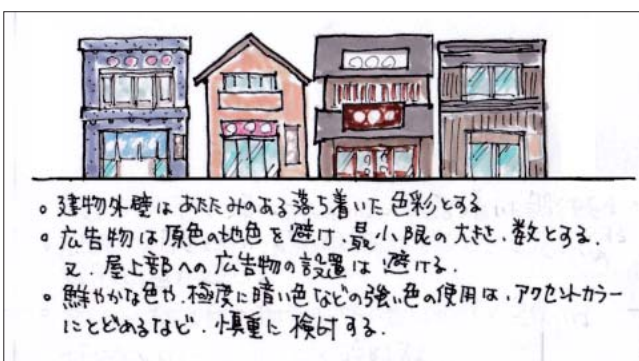 。建物外壁はあたたみのある落ち着いた色彩とする
。広告物は原色の地色を避け、最小限の大きさ、数とする.
又、屋上部への広告物の設置は避ける.
。鮮やかな色や、極度に暗い色などの強い色の使用は、アクセントカラー
にとどめるなど、慎重に検討する.